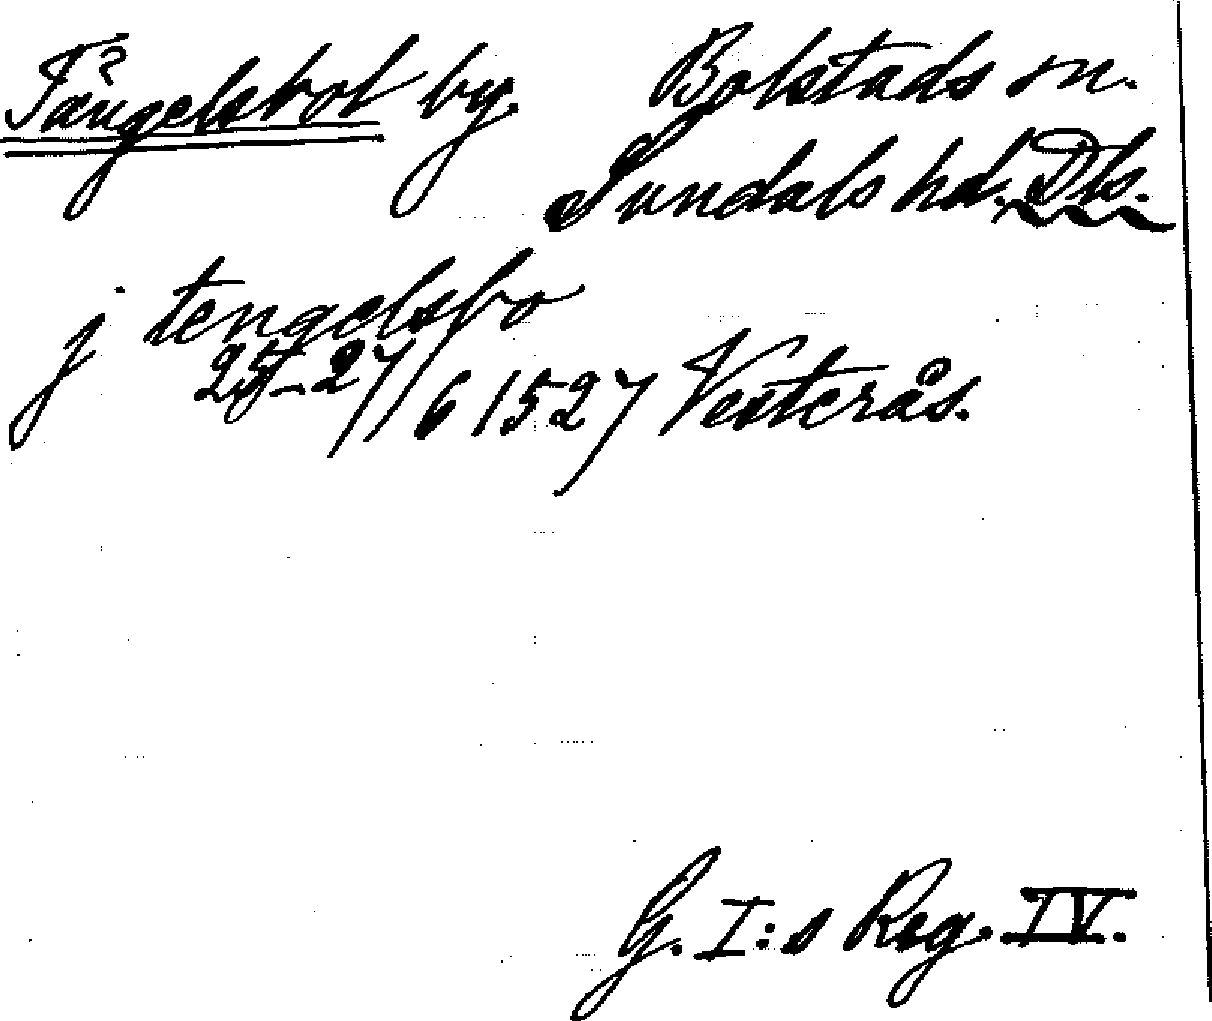 Tångelsbol by. Bolstads sn.
Sundals hd. Dls.
j tengelsbo
25-27/6 1527 Vesterås.
G. I:s Reg. IV.